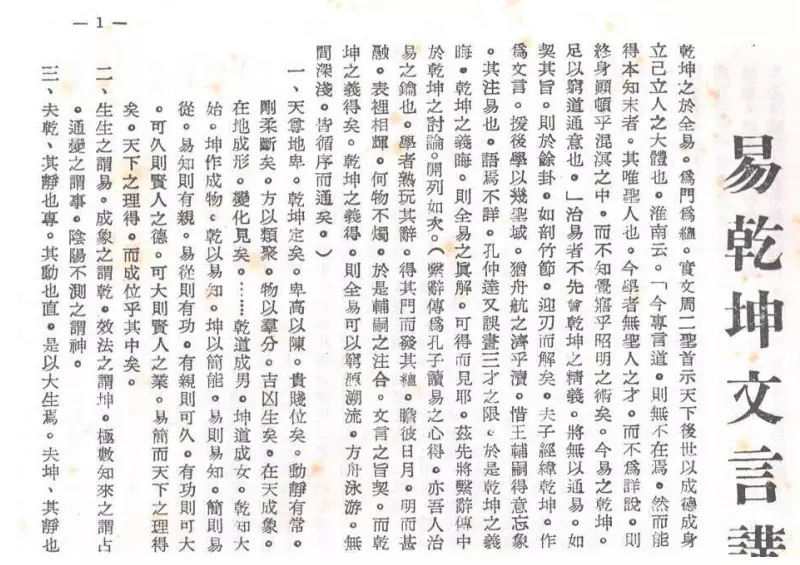 易乾坤文言講
乾坤之於全易。爲門爲樞。實文周二聖首示天下後世以成德成身
立己立人之大體也。淮南云。「今專言道。則無不在焉。然而能
得本知末者。其唯聖人也。今學者無聖人之才。而不爲詳說。則
終身顛頓乎混溟之中。而不知覺寤乎昭明之術矣。今易之乾坤。
足以窮道通意也。」治易者不先曾乾坤之精義。將無以通易。如
契其旨。則於餘卦。如剖竹節。迎刃而解矣。夫子經緯乾坤。作
爲文言。援後學以幾聖域。猶舟航之濟乎瀆。惜王輔嗣得意忘象
。其注易也。語焉不詳。孔仲達又誤畫三才之限。於是乾坤之義
晦。乾坤之義晦。則全易之眞解。可得而見耶。茲先將繫辭傳中
於乾坤之討論。開列如次。(繫辭傳爲孔子讀易之心得。亦吾人治
易之鑰也。學者熟玩其辭。得其門而發其樞。瞻彼日月。明而甚
融。表裡相輝。何物不燭。於是輔嗣之注合。文言之旨契。而乾
坤之義得矣。乾坤之義得。則全易可以窮源溯流。方舟泳游。無
間深淺。皆循序而通矣。)
一、天尊地卑。乾坤定矣。卑高以陳。貴賤位矣。動靜有常。
剛柔斷矣。方以類聚。物以羣分。吉凶生矣。在天成象。
在地成形。變化見矣。……乾道成男。坤道成女。乾知大
始。坤作成物。乾以易知。坤以簡能。易則易知。簡則易
從。易知則有親。易從則有功。有親則可久。有功則可大
。可久則賢人之德。可大則賢人之業。易簡而天下之理得
矣。天下之理得。而成位乎其中矣。
二、生生之謂易。成象之謂乾。效法之謂坤。極數知來之謂占
。通變之謂事。陰陽不測之謂神。
三、夫乾、其靜也專。其動也直。是以大生焉。夫坤、其靜也
— 1 —